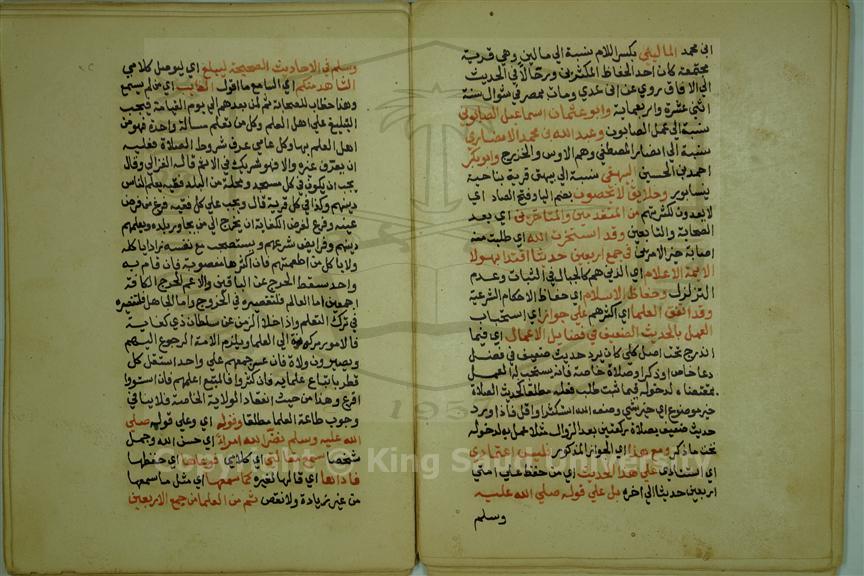 ابى محمد الماليني بكسر اللام نسبة الى مالين وهي قرية
مجتمعة كان احد الحفاظ المكثرين ورحالا في الحديث
الى الافاق روى عن ابن عدي ومات بمصر في شوال سنة
اثنتي عشرة واربعماية وابو عثمان اسماعيل الصابوني
نسبة الى عمل الصابون وعبد الله بن محمد الانصاري
نسبة الى انصار المصطفى وهم الاوس والخزرج وابو بكر
احمد بن الحسين البيهقي نسبة الى بيهق قرية بناحية
نيسابور وخلايق لا يحصون بضم اليا وفتح الصاد اي
لا يعدون لكثرتهم من المتقدمين والمتاخرين اي بعد
الصحابة والتابعين وقد استخرت الله اي طلبت منه
اصابة خير الامرين في جمع اربعين حديثا اقتدا بهولا
الايمة الاعلام اي الذين هم كالجبال في الثبات وعدم
التزلزل وحفاظ الاسلام اي حفاظ الاحكام الشرعية
وقد اتفق العلما اي اكثرهم على جواز اي استحباب
العمل بالحديث الضعيف في فضايل الاعمال اي فيما
اندرج تحت اصل كلي كان يرد حديث ضعيف في فضل
دعا خاص او ذكر او صلاة خاصة فانه يستحب لنا العمل
بمقتضاه لدخوله فيما ثبت طلب فعله مطلقا لحديث الصلاة
خير موضوع اي خير شي وضعه الله استكثر او اقل فاذا ورد
حديث ضعيف بصلاة ركعتين بعد الزوال مثلا عمل به لدخوله
تحت ما ذكر ومع هذا اي الجواز المذكور فليس اعتمادي
اي استنادي على هذا الحديث اي من حفظ على امتي
اربعين حديثا الى اخره بل على قوله صلى الله عليه
وسلم
وسلم في الاحاديث الصحيحة ليبلغ اي ليوصل كلامي
الشاهد منكم اي السامع ما اقول الغايب اي من لم يسمع
وهذا خطاب للصحابة ثم لمن بعدهم الى يوم القيامة فيجب
التبليغ على اهل العلم وكل من تعلم مسالة واحدة فهو من
اهل العلم بها وكل عامي عرف شروط الصلاة فعليه
ان يعرف غيره والا فهو شريك في الاثم قاله الغزالي وقال
يجب ان يكون في كل مسجد ومحلة من البلد فقيه يعلم الناس
دينهم وكذا في كل قرية قال ويجب على كل فقيه فرغ من فرض
عينه وفرغ لفرض الكفاية ان يخرج الى من يجاور بلده ويعلمهم
دينهم وفرايض شرعهم ويستصحب مع نفسه زادا ياكله
ولا ياكل من اطعمتهم فان اكثرها مغصوبة فان قام به
واحد سقط الحرج عن الباقين والا عم الحرج الكافة
اجمعين اما العالم فلتقصيره في الخروج واما الجاهل فلتقصيره
في ترك التعلم واذا خلا الزمن عن سلطان ذي كفاية
فالامور موكولة الى العلما ويلزم الامة الرجوع اليهم
ويصيرون ولاة فان عسر جمعهم على واحد استقل كل
قطر باتباع علمايه فان كثروا فالمتبع اعلمهم فان استووا
اقرع وهذا من حيث انعقاد الولاية الخاصة فلا ينافي
وجوب طاعة العلما مطلقا وقوله اي وعلى قوله صلى
الله عليه وسلم نضر الله امراء اي حسن الله وجمل
شخصا سمع مقالتي اي كلامي فوعاها اي حفظها
فاداها اي قالها لغيره كما سمعها اي مثل ما سمعها
من غير زيادة ولا نقص ثم من العلما من جمع الاربعين
Copyright © King Saud University
195